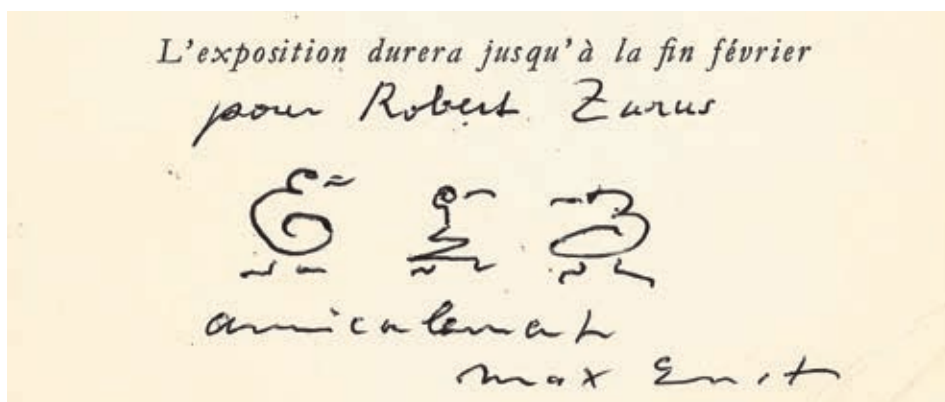 L'exposition durera jusqu'à la fin février
pour Robert Zurus
amicalement
max Ernst